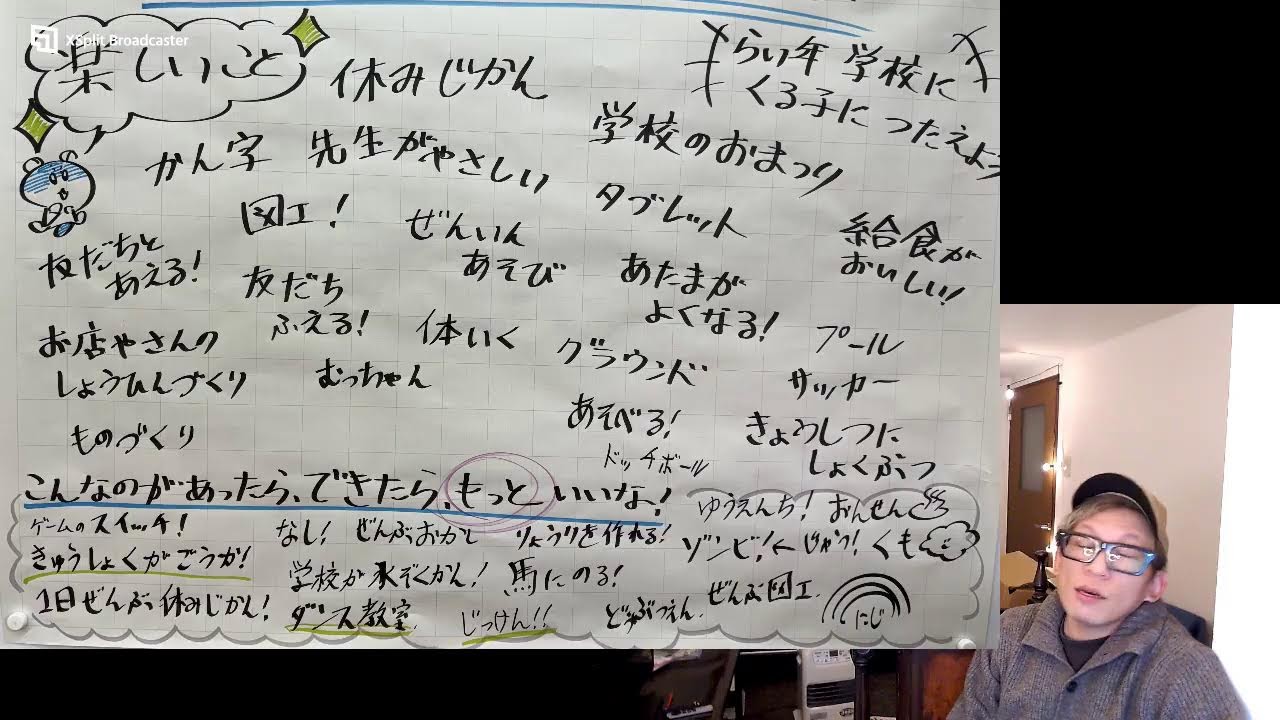 XSplit Broadcaster
楽しいこと
休みじかん
らい年 学校に
くる子に つたえよう
かん字
先生がやさしい
学校のおまつり
図工！
ぜんいん
あそび
タブレット
給食が
おいしい！
友だちと
あえる！
友だち
ふえる！
体いく
あたまが
よくなる！
プール
お店やさんの
しょうひんづくり
むっちゃん
グラウンド
あそべる！
サッカー
ものづくり
ドッチボール
きょうしつに
しょくぶつ
こんなのがあったら、できたら、もっといいな！
ゲームのスイッチ！
なし！ ぜんぶおかし
りょうりを作れる！
ゆうえんち！ おんせん
きゅうしょくがごうか！
学校が水ぞくかん！
馬にのる！
ゾンビ！← じゅう！
くも
1日ぜんぶ休みじかん！
ダンス教室
じっけん!!
どうぶつえん
ぜんぶ図工
にじ